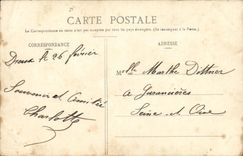 CARTE POSTALE
La Correspondance au recto n'est pas acceptée par tous les pays étrangers. (Se renseigner à la Poste.)
CORRESPONDANCE
ADRESSE
Dreux le 26 février
Souvenir et Amitié
Charlotte
Mlle Marthe Dittner
a Garancières
Seine et Oise